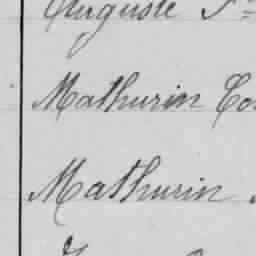 Auguste
Mathurin
Mathurin